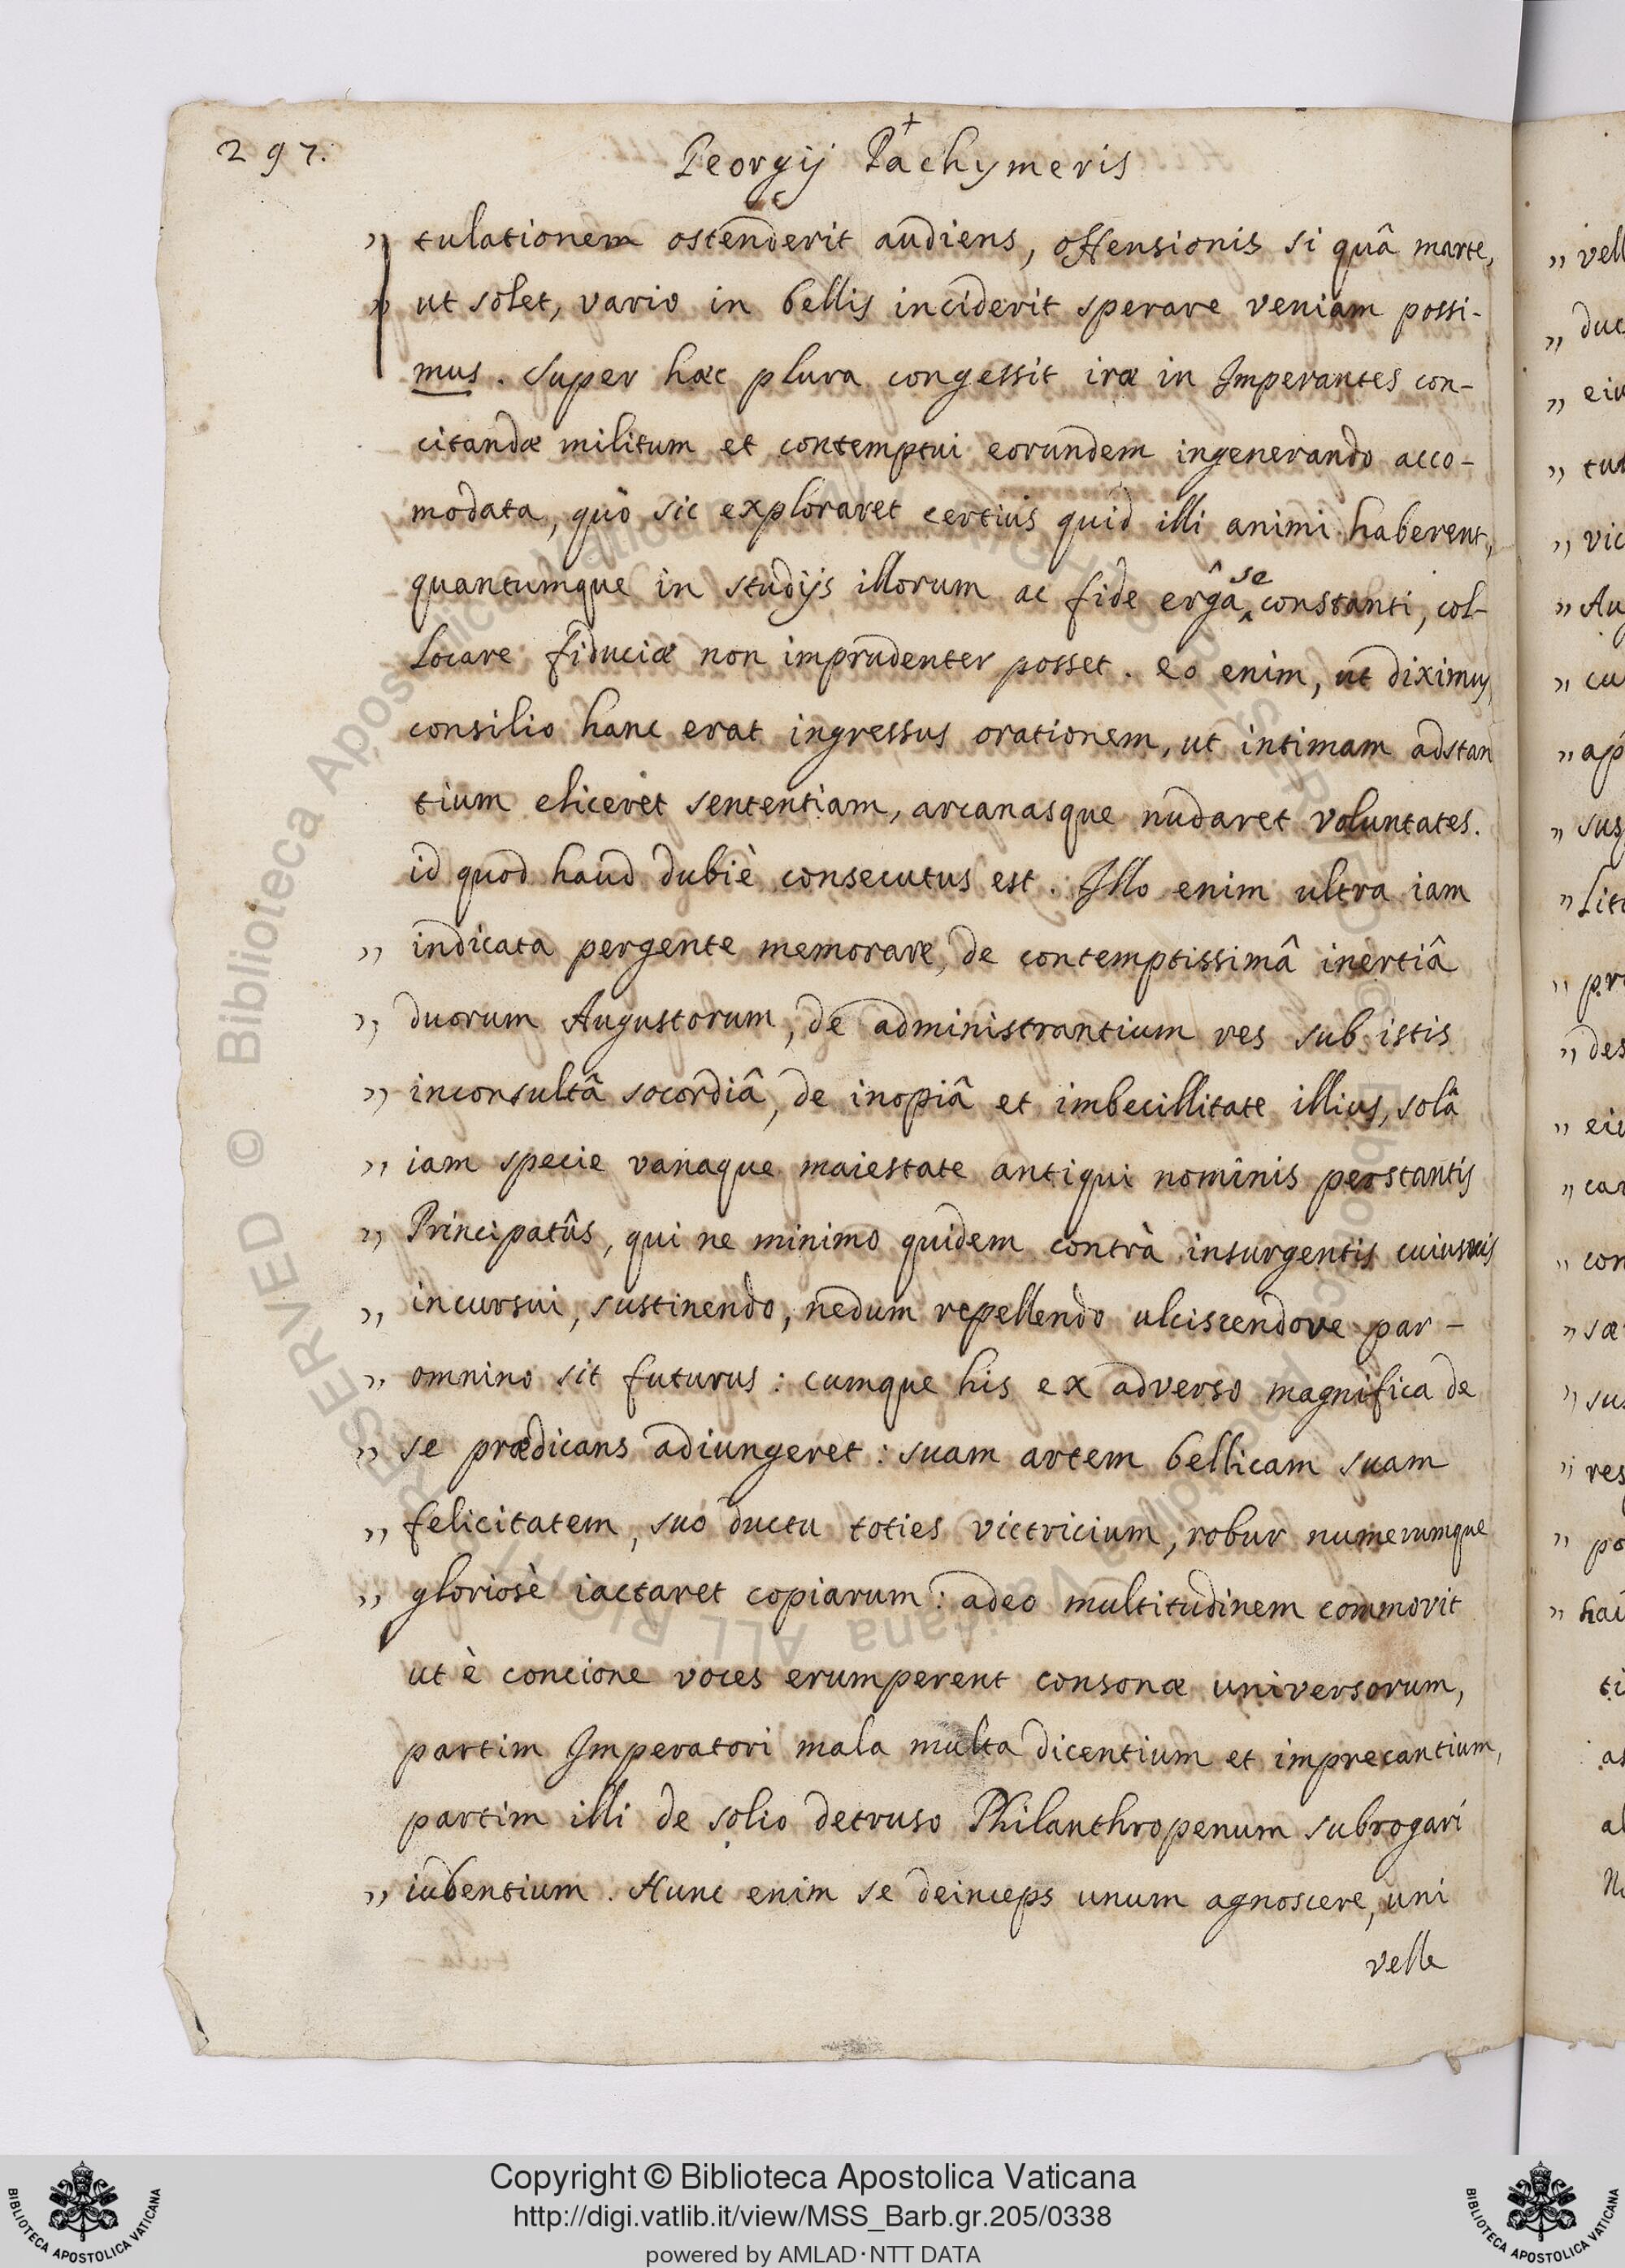 297.
Georgij Pachymeris
„ tulationem ostenderit audiens, offensionis si quâ marte,
„ ut solet, vario in bellis inciderit sperare veniam possi-
mus. super hæc plura congessit iræ in Imperantes con-
citandæ militum et contemptui eorundem ingenerando acco-
modata, quò sic exploraret certius quid illi animi haberent,
quantumque in studijs illorum ac fide ergâ se constanti, col-
locare fiduciæ non imprudenter posset. eo enim, ut diximus,
consilio hanc erat ingressus orationem, ut intimam adstan
tium eliceret sententiam, arcanasque nudaret voluntates.
id quod haud dubiè consecutus est. Illo enim ultra iam
„ indicata pergente memorare, de contemptissimâ inertiâ
„ duorum Augustorum, de administrantium res sub istis
„ inconsultâ socordiâ, de inopiâ et imbecillitate illius, solâ
„ iam specie vanaque maiestate antiqui nominis perstantis
„ Principatûs, qui ne minimo quidem contrà insurgentis cuiusvis
„ incursui, sustinendo, nedum repellendo ulciscendove par-
„ omnino sit futurus: cumque his ex adverso magnifica de
„ se prædicans adiungeret: suam artem bellicam suam
„ felicitatem, suo ductu toties victricium, robur numerumque
„ gloriosè iactaret copiarum: adeo multitudinem commovit
ut è concione voces erumperent consonæ universorum,
partim Imperatori mala multa dicentium et imprecantium,
partim illi de solio detruso Philanthropenum subrogari
„ iubentium. Hunc enim se deinceps unum agnoscere, uni
velle
Copyright © Biblioteca Apostolica Vaticana
http://digi.vatlib.it/view/MSS_Barb.gr.205/0338
powered by AMLAD·NTT DATA